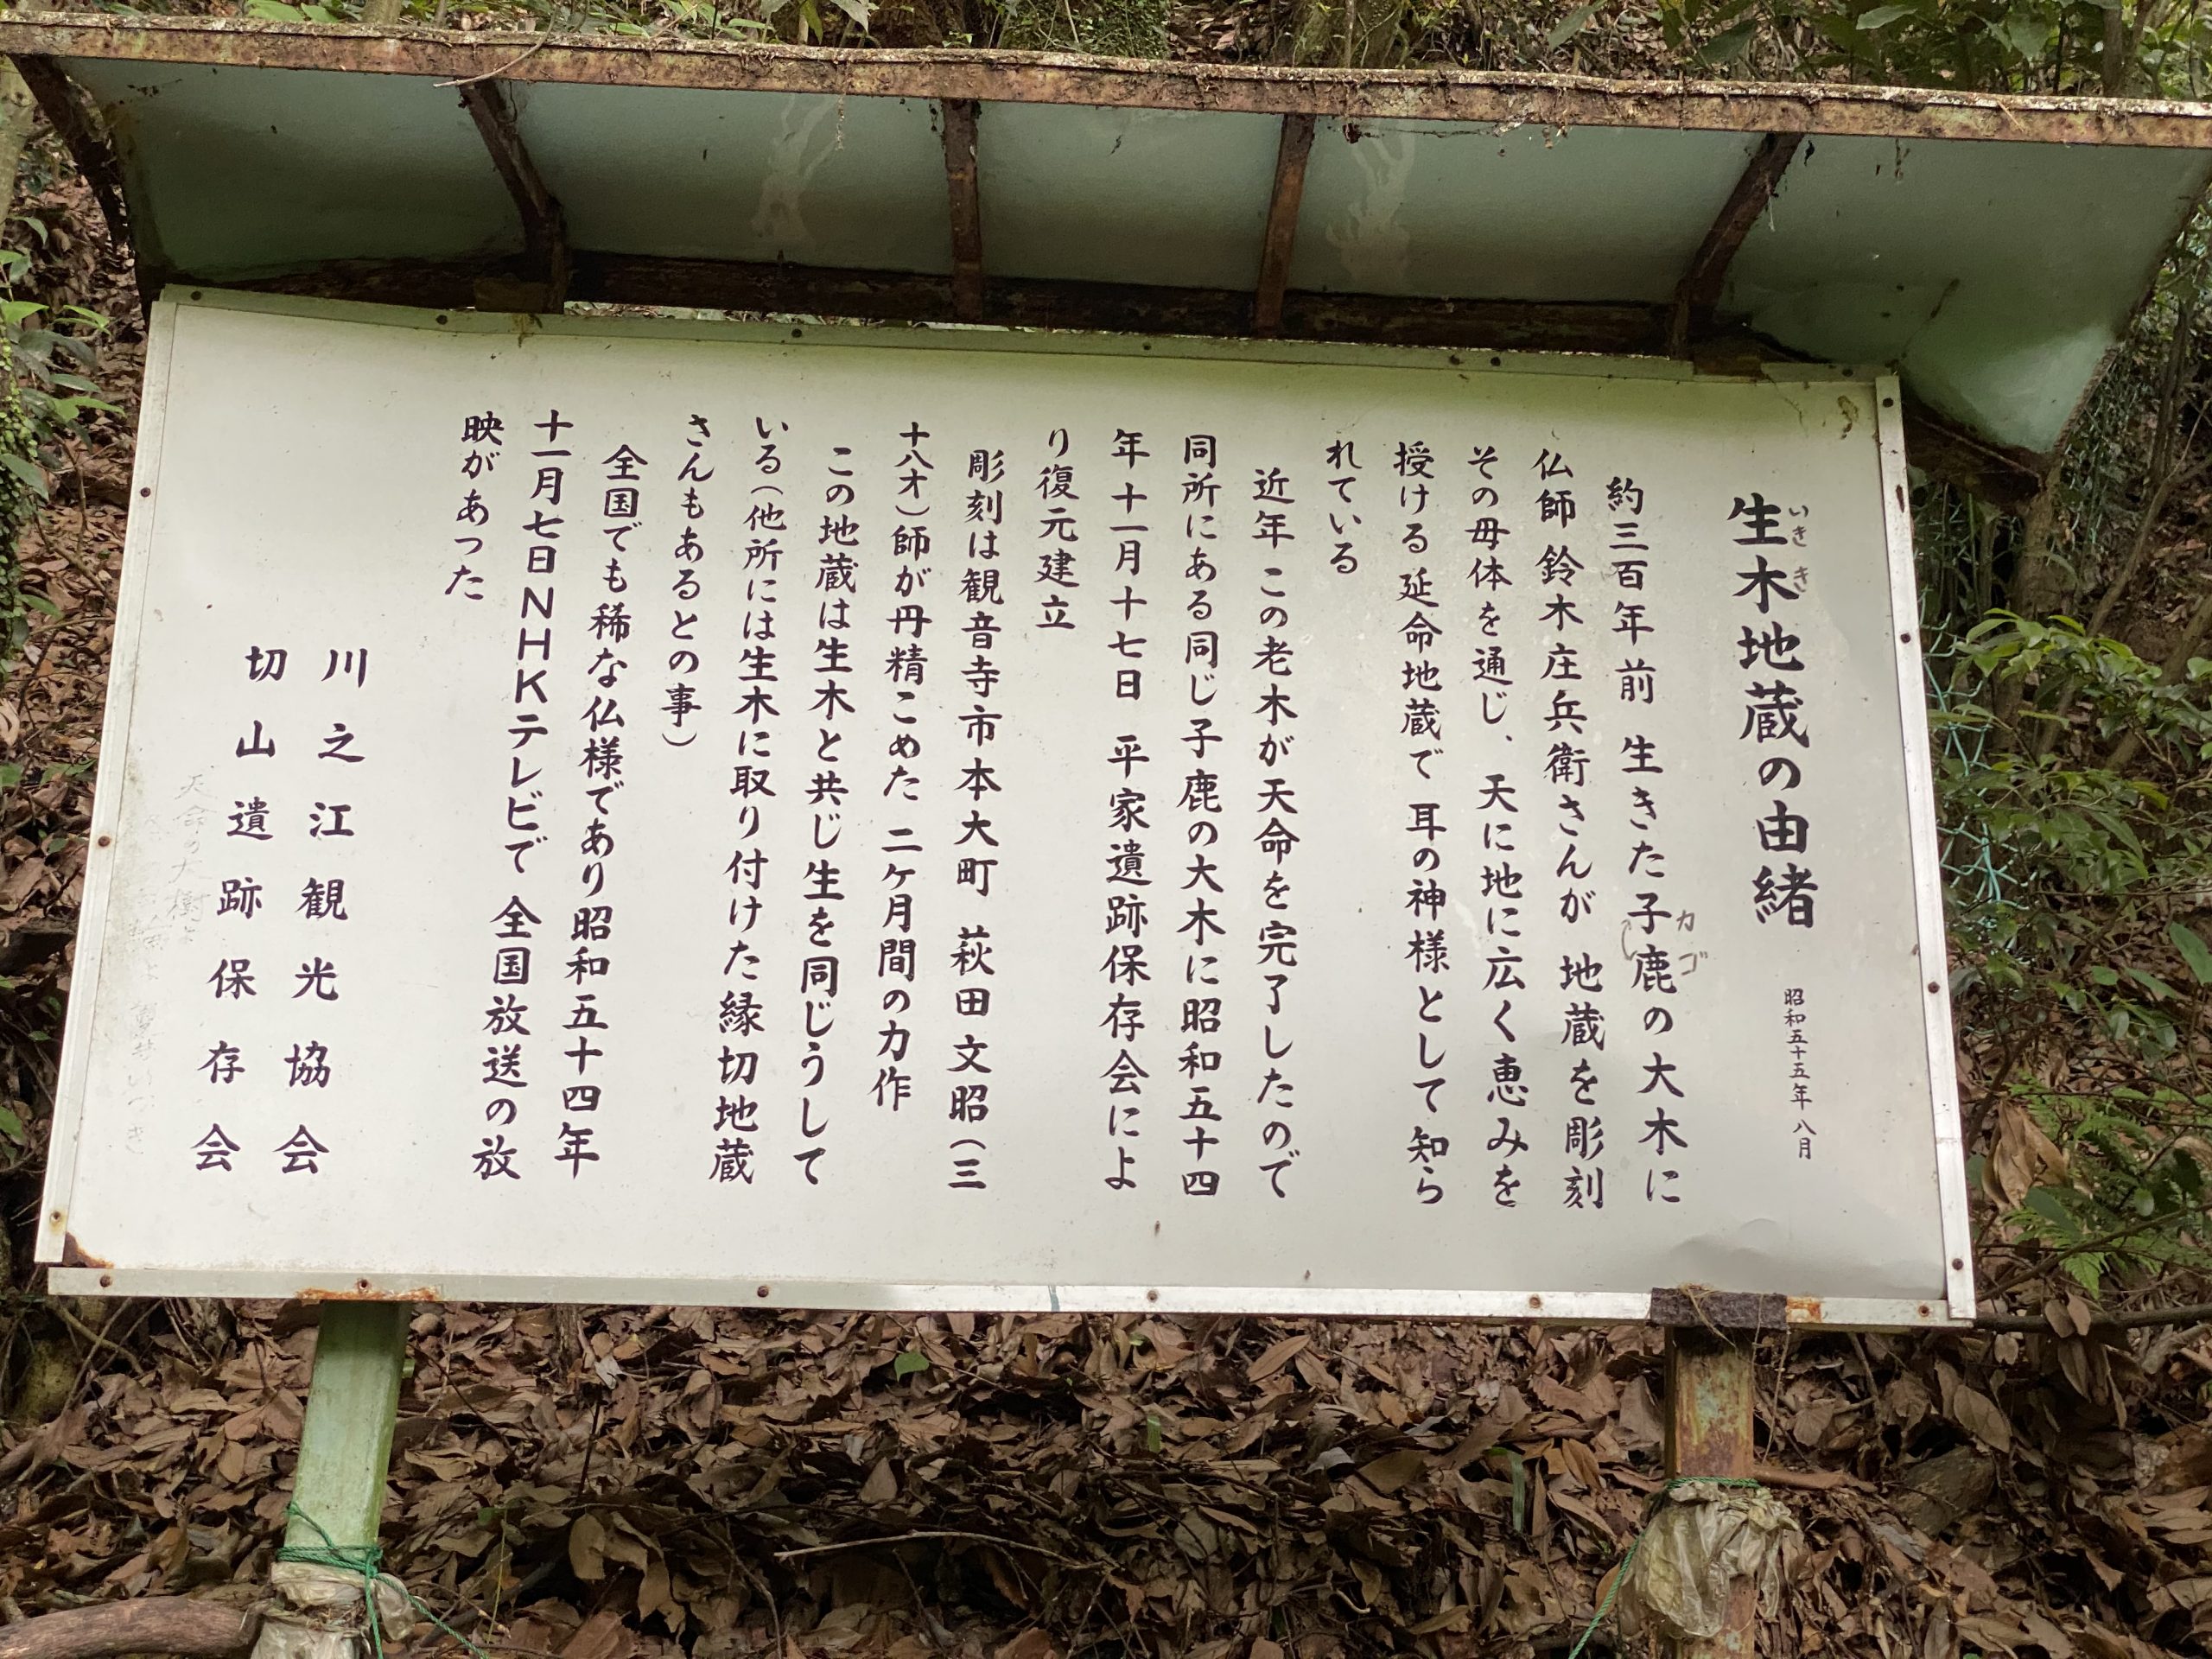 生木地蔵の由緒 昭和五十五年八月
いき き
約三百年前 生きた子鹿の大木に
カゴ
仏師 鈴木庄兵衛さんが 地蔵を彫刻
その母体を通じ、天に地に広く恵みを
授ける 延命地蔵で 耳の神様として 知ら
れている
近年 この老木が天命を完了したので
同所にある同じ子鹿の大木に昭和五十四
年十一月十七日 平家遺跡保存会によ
り復元建立
彫刻は観音寺市本大町 萩田文昭(三
十八才)師が丹精こめた 二ケ月間の力作
この地蔵は生木と共じ生を同じうして
いる(他所には生木に取り付けた縁切地蔵
さんもあるとの事)
全国でも稀な仏様であり昭和五十四年
十一月七日NHKテレビで 全国放送の放
映があった
川之江観光協会
切山遺跡保存会